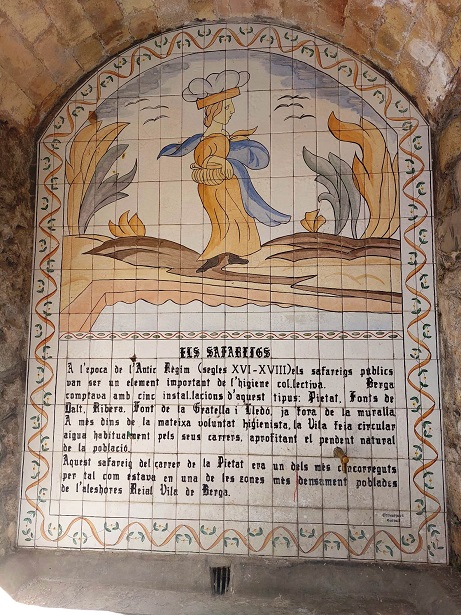 ELS SAFAREIGS
A l'època de l'Antic Règim (segles XVI-XVIII) els safareigs públics
van ser un element important de l'higiene col.lectiva. Berga
comptava amb cinc instal.lacions d'aquest tipus: Pietat, Fonts de
Dalt, Ribera, Font de la Gratella i Lledó, ja fora de la muralla.
A més dins de la mateixa voluntat higienista, la Vila feia circular
aigua habitualment pels seus carrers, aprofitant el pendent natural
de la població.
Aquest safareig del carrer de la Pietat era un dels més concorreguts
per tal com estava en una de les zones més densament poblades
de l'aleshores Reial Vila de Berga.